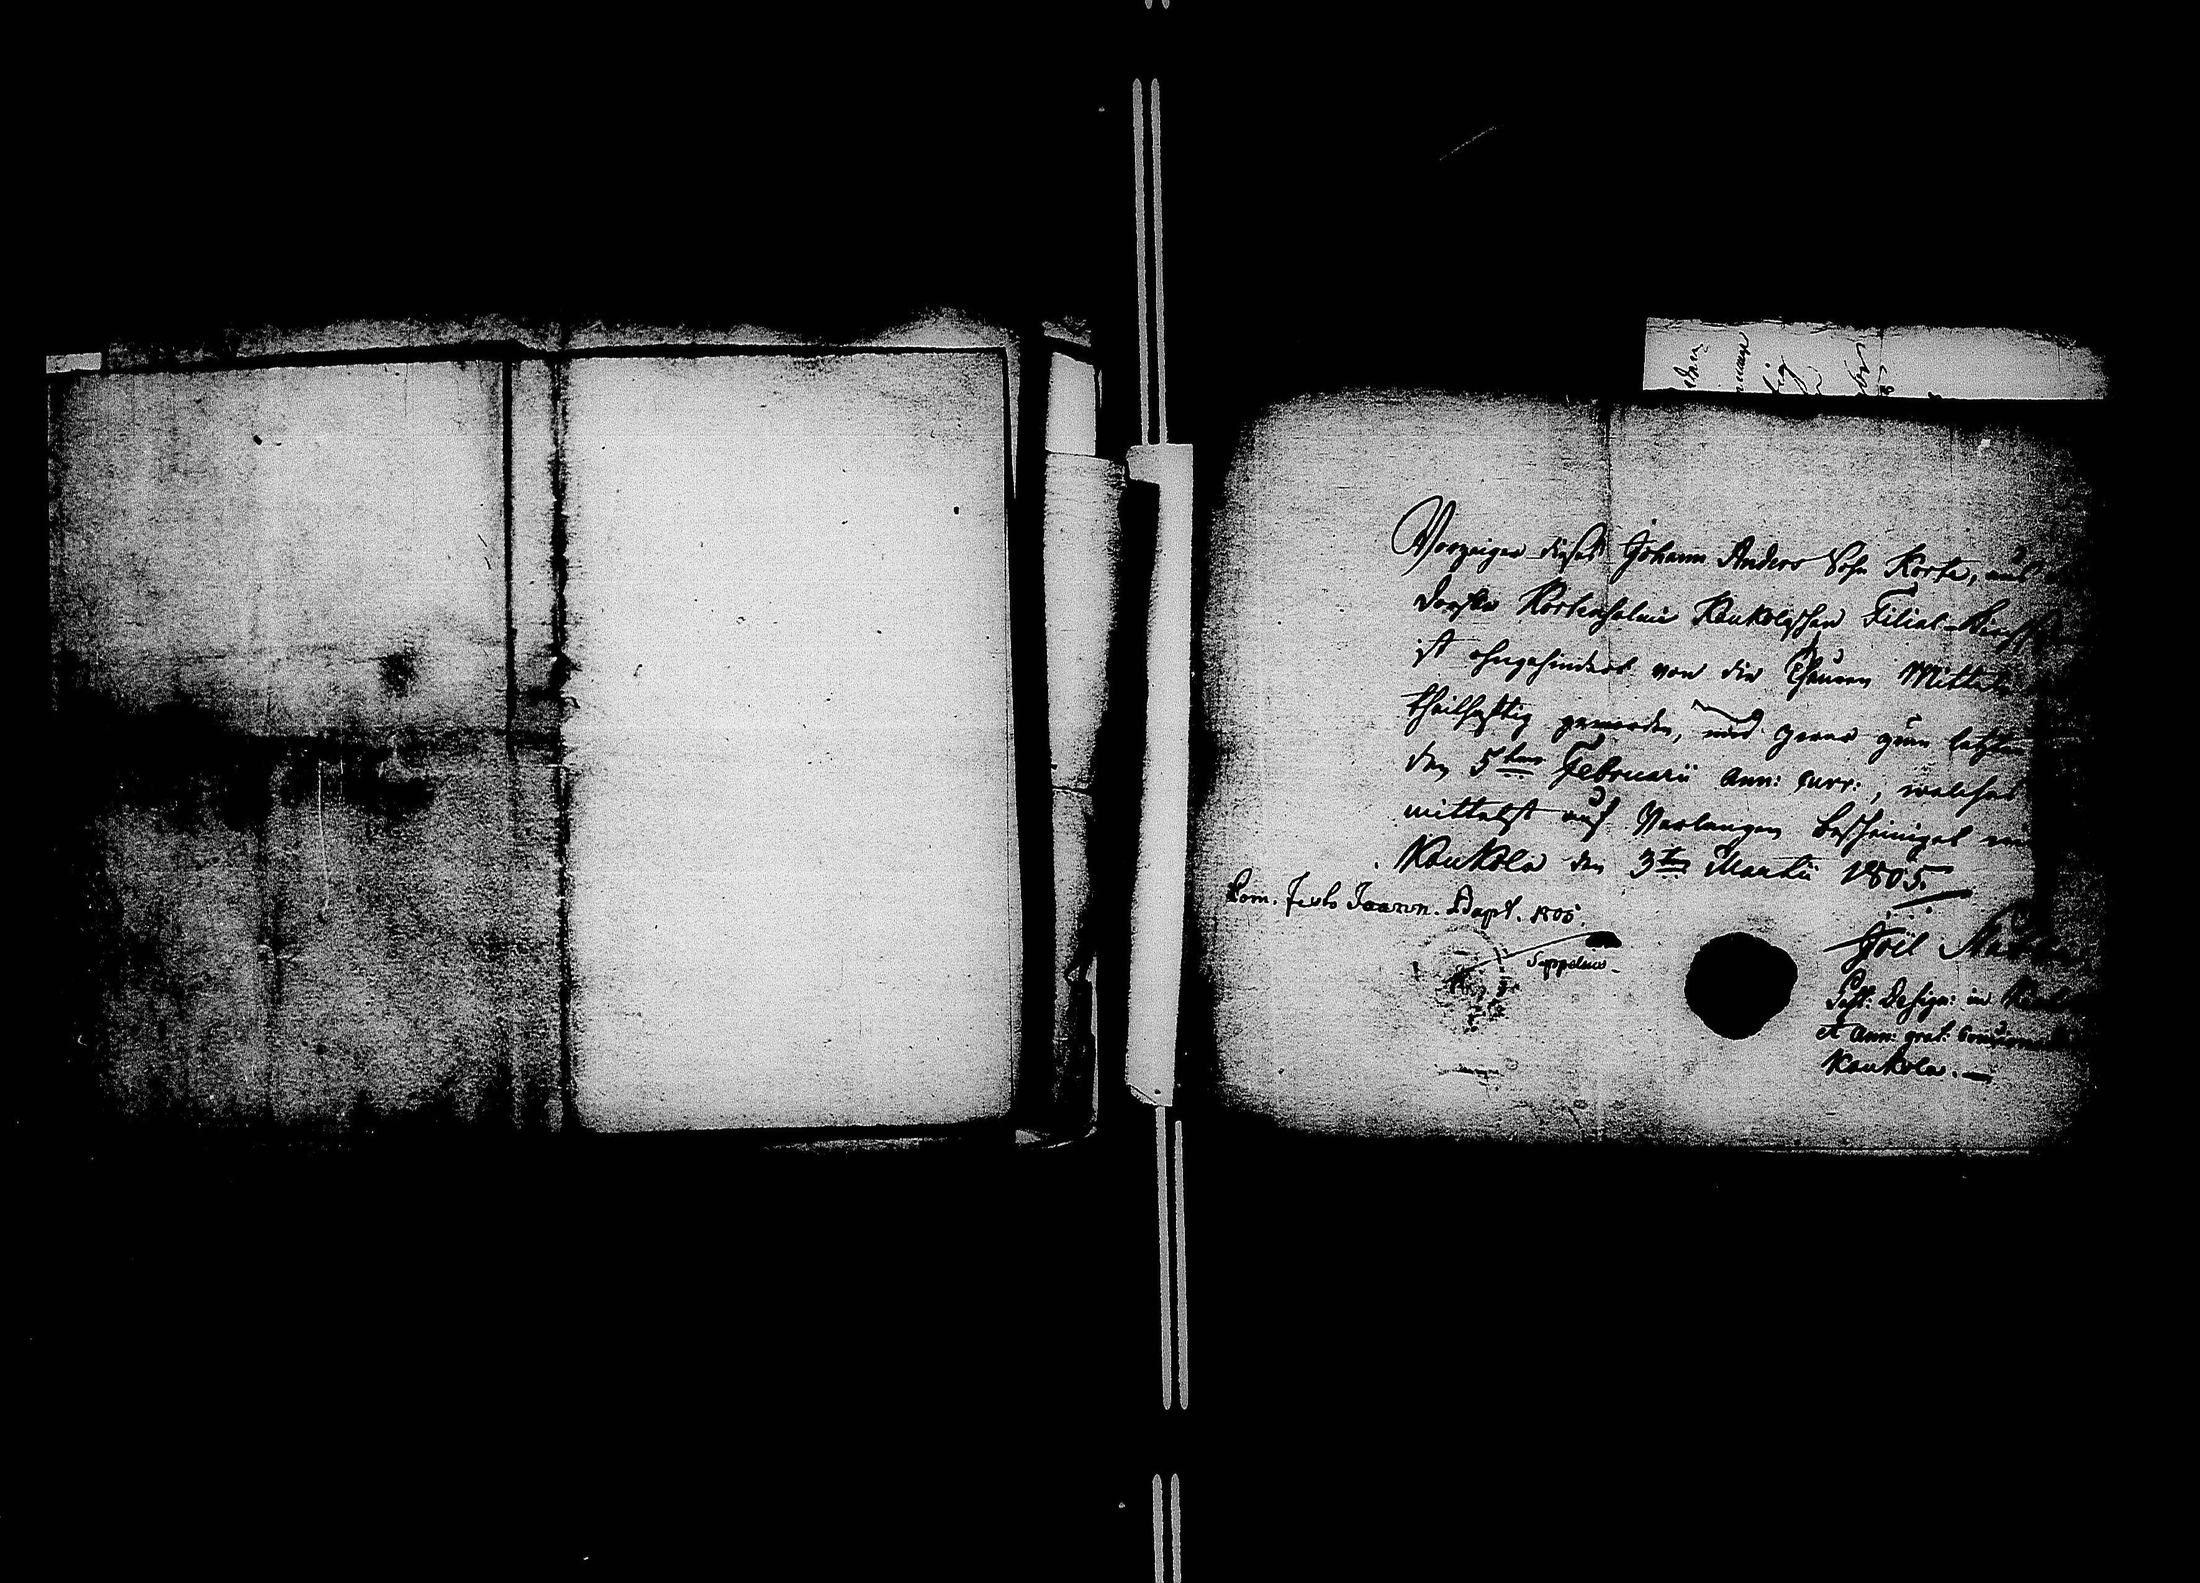 Vorzeiger dieses Johann Anders Sohn Korte, aus
Dorfe Kortensalmi Kaukolaschen Filial-Kirchs
ist ohngehindert von die Theuren Mittel
theilhafftig geworden, und zwar zum letzten
den 5ten Februarii ann: curr:, welches
mittelst auf Verlangen bescheiniget
Kaukola den 3ten Martii 1805.
Com. festo Joann. Bapt. 1805
Seppelius
Joël
Past: Design: in
et Ann: grat:
Kaukola.